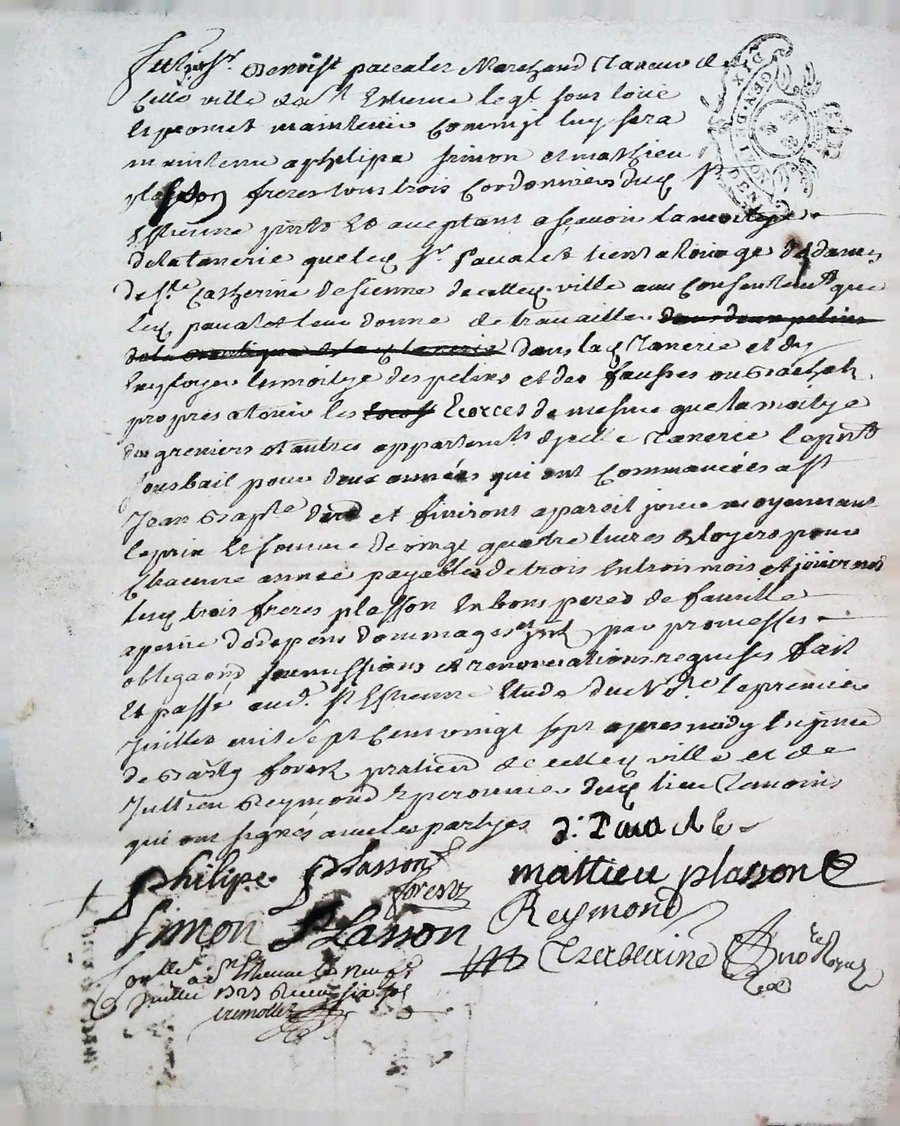 Benoist pacalet Marchand Taneur de
cette ville de St Estienne lequel sous loue
et promet maintenir comme il luy sera
maintenu a phelipe simon et mathieu
plasson freres tous trois cordonniers dud St
Estienne pnts et aceptant a sçavoir la moitye
de la tanerie que led Sr Pacalet tient a louage des dames
de Ste Catherine de sienne de cette ville avec consentemt que
led pacalet leur donne de travailler dans
de la lad tanerie dans lad Tanerie et d'y
employer la moitye des pelins et des fausses ou
propres a tenir les Ecorces de mesme que la moitye
des greniers et autres appartents d'icelle Tanerie le pnt
sousbail pour deux années qui ont commancées a St
Jean Baptte der et finiront a pareil jour moyennant
le prix et somme de vingt quatre livres de loyers pour
chacune année payables de trois en trois mois et jouiront
lesd trois freres plasson en bons peres de famille
a peine de depens dommages et intts par promesses
obligaons soumissions et renonciations requises fait
et passé aud St Estienne Etude du Nore le premier
Juillet mil sept cent vingt sept apres midy En pnce
de forest praticien de cette ville et de
Jullien Reymond dud lieu Temoins
qui ont signés avec les partyes
Philipe Plasson
forest
mattieu plasson
Simon Plasson
Reymond
Nore Royal
Conlle a St Estienne le neuf
Juillet
DIX
GEN. DE